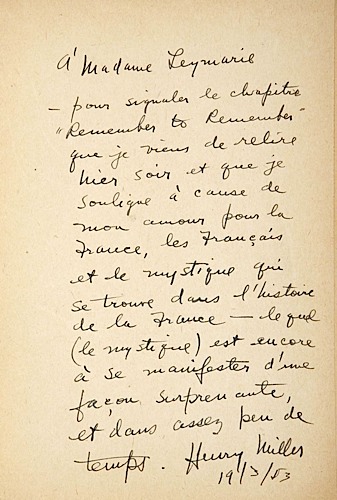 à Madame Leymarie
— pour signaler le chapitre
"Remember to Remember"
que je viens de relire
hier soir et que je
souligne à cause de
mon amour pour la
France, les Français
et le mystique qui
se trouve dans l'histoire
de la France — lequel
(le mystique) est encore
à se manifester d'une
façon surprenante,
et dans assez peu de
temps. Henry Miller
19/3/53